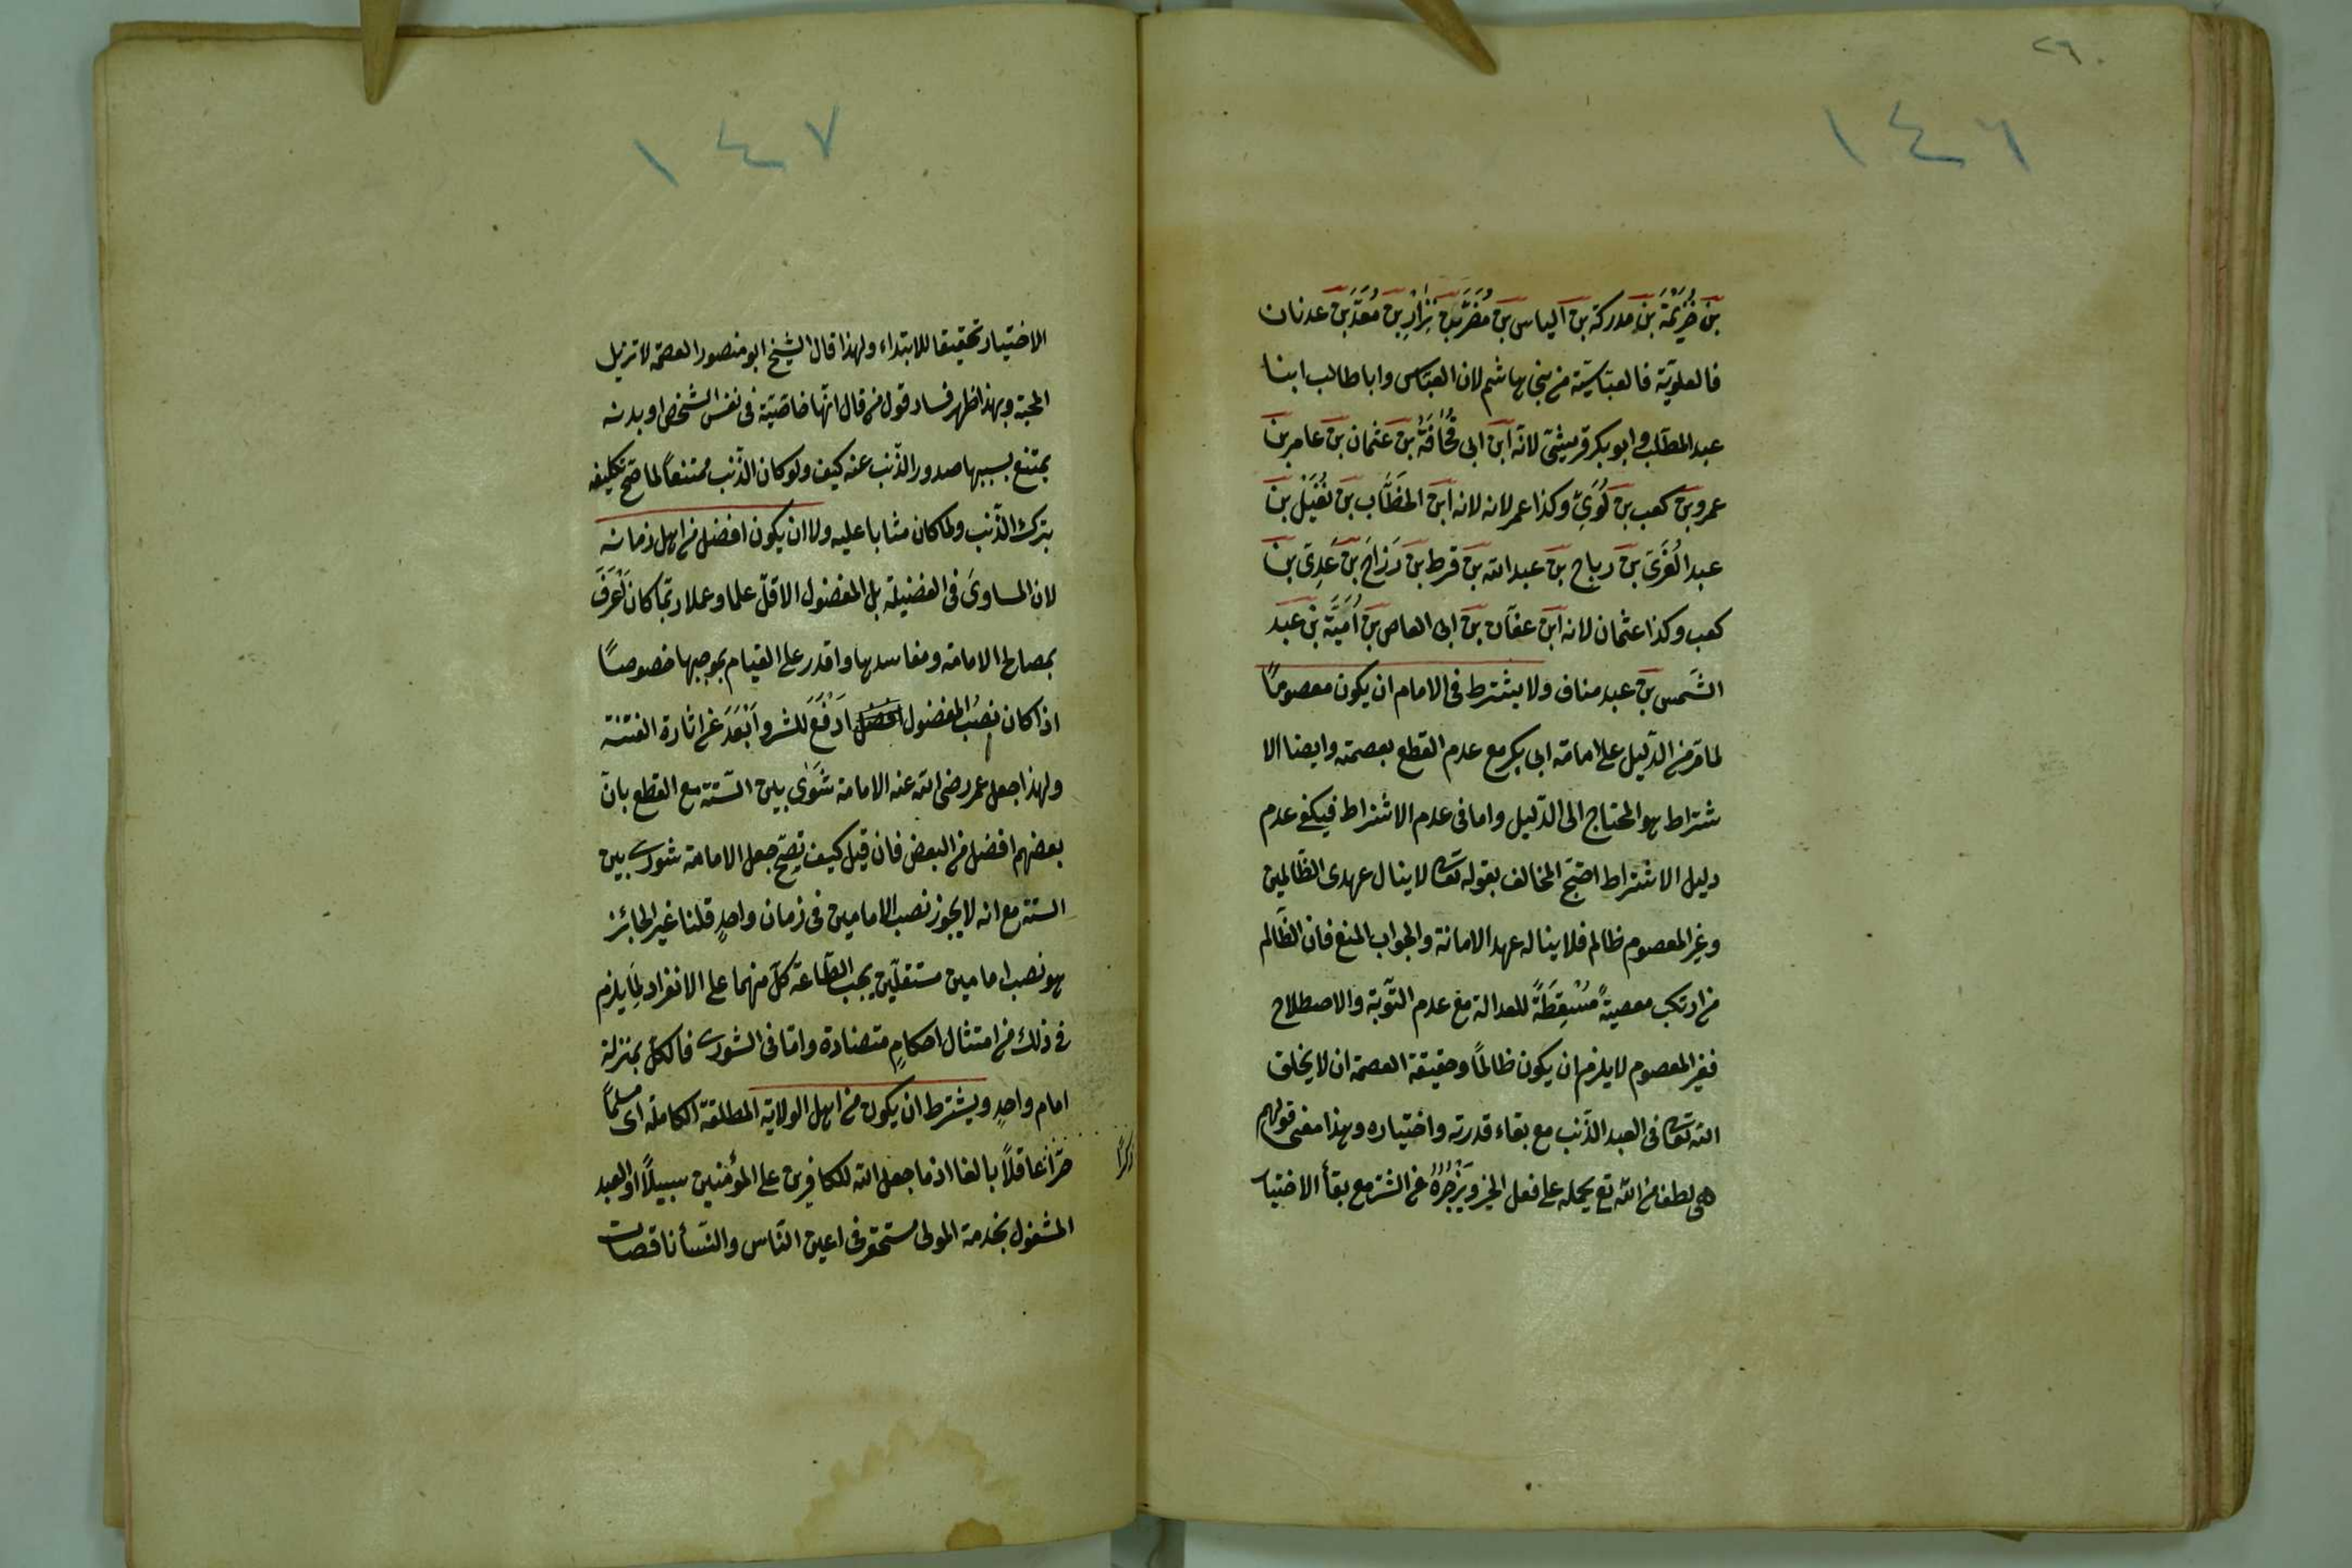 ٢٦٠
١٤٦
بن خُزَيْمَة بن مدركة بن الياس بن مُضَر بن نِزَار بن مُعَدّ بن عدنان
فالعلويّة فالعبّاسيّة من بنى هاشم لان العبّاس وابا طالب ابنا
عبد المطّلب وابو بكر قريشىّ لانّه ابن ابى قُحَافَة بن عثمان بن عامر بن
عمرو بن كعب بن لُوَىّ وكذا عمر لانه لانه ابن الخَطَّاب بن نُفَيْل بن
عبد العُزَّى بن رباح بن عبد الله بن قرط بن رَزاح بن عَدِىّ بن
كعب وكذا عثمان لانه ابن عفّان بن ابى العاص بن اُمَيَّة بن عبد
الشَمس بن عبد مناف ولا يشترط فى الامام ان يكون معصومًا
لما مرّ من الدّليل على امامة ابى بكر مع عدم القطع بعصمته وايضا الا
شتراط هو المحتاج الى الدّليل واما فى عدم الاشتراط فيكفى عدم
دليل الاشتراط احتجّ المخالف بقوله تعالى لا ينال عهدى الظّالمين
وغير المعصوم ظالم فلا يناله عهد الامانة والجواب المنع فان الظّالم
من ارتكب معصيةً مُسْقِطَةً للعدالة مع عدم التّوبة والاصطلاح
فغير المعصوم لا يلزم ان يكون ظالمًا وحقيقة العصمة ان لا يخلق
الله تعالى فى العبد الذّنب مع بقاء قدرته واختياره وهذا معنى قولهم
هى لطف من الله تع يحمله على فعل الخير ويَزْجُرُهُ عن الشّر مع بقاء الاختيار
١٤٧
الاختيار تحقيقا للابتداء ولهذا قال الشيخ ابو منصور العصمة لا تزيل
المحبة وبهذا ظهر فساد قول من قال انّها خاصّيّة فى نفس الشخص او بدنه
يمتنع بسببها صدور الذّنب عنه كيف ولو كان الذّنب ممتنعًا لما صحّ تكليفه
بترك الذّنب ولما كان مثابا عليه ولا ان يكون افضل من اهل زمانه
لان المساوىَ فى الفضيلة بل المفضول الاقلّ علما وعملا ربّما كان اَعْرَفَ
بمصالح الامامة ومفاسدها واقدر على القيام بموجبها خصوصًا
اذا كان نصبُ المفضول افضل اَدْفَعَ للشر واَبْعَدَ عن اثارة الفتنة
ولهذا جعل عمر رضى الله عنه الامامة شَوْرٰى بين السّتة مع القطع بانّ
بعضهم افضل من البعض فان قيل كيف يصحّ جعل الامامة شورى بين
الستة مع انه لا يجوز نصب الامامين فى زمان واحدٍ قلنا غير الجائز
هو نصب امامين مستقلّين يجب الطّاعة كلّ منهما على الانفراد لِمَا يلزم
فى ذلك من امتثال احكامٍ متضادة وامّا فى الشورى فالكلّ بمنزلة
امام واحدٍ ويشترط ان يكون من اهل الولاية المطلقة الكاملة اى مسلمًا
حرًّا عاقلاً بالغا اذ ما جعل الله للكافرين على المؤمنين سبيلاً والعبد
المشغول بخدمة المولى مستحقر فى اعين النّاس والنّساء ناقصات
ذكرًا